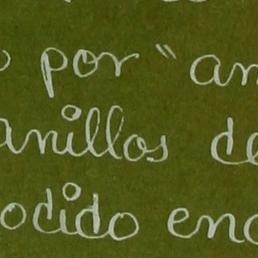 por " an
anillos de
odido enc